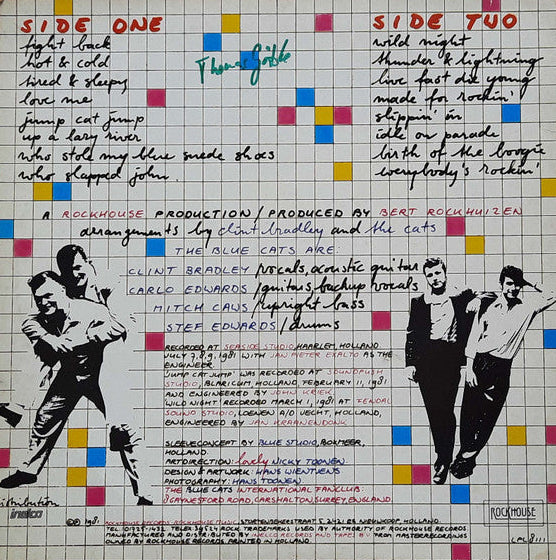 SIDE ONE
fight back
hot & cold
tired & sleepy
love me
jump cat jump
up a lazy river
who stole my blue suede shoes
who slapped john.
SIDE TWO
wild night
thunder & lightning
live fast die young
made for rockin'
slippin' in
idle on parade
birth of the boogie
everybody's rockin'
A ROCKHOUSE PRODUCTION / PRODUCED BY BERT ROCKHUIZEN
arrangements by clint bradley and the cats
THE BLUE CATS ARE:
CLINT BRADLEY / vocals, acoustic guitar
CARLO EDWARDS / guitars, backup vocals
MITCH CAWS / upright bass
STEF EDWARDS / drums
RECORDED AT SEASIDE STUDIO, HAARLEM, HOLLAND.
JULY 7, 8, 9, 1981 WITH JAN PIETER EXALTO AS THE
ENGINEER.
'JUMP CAT JUMP' WAS RECORDED AT SOUNDPUSH
STUDIO, BLARICUM, HOLLAND, FEBRUARY 11, 1981
AND ENGINEERED BY JOHN KRIEK.
'WILD NIGHT' RECORDED MARCH 1, 1981 AT FENDAL
SOUND STUDIO, LOENEN A/D VECHT, HOLLAND,
ENGINEERED BY JAN KRAANENDONK
SLEEVECONCEPT BY BLUE STUDIO, BOKMEER,
HOLLAND.
ARTDIRECTION: lovely NICKY TOONEN
DESIGN & ARTWORK: HANS WIENTJENS
PHOTOGRAPHY: HANS TOONEN
THE BLUE CATS INTERNATIONAL FANCLUB:
3 GAYNESFORD ROAD, CARSHALTON SURREY, ENGLAND.
distribution
inelco
℗ 1981
ROCKHOUSE RECORDS - ROCKHOUSE MUSIC
HOLLAND.
TRADEMARKS USED BY AUTHORITY OF ROCKHOUSE RECORDS.
MANUFACTURED AND DISTRIBUTED BY INELCO RECORDS AND TAPES BV FROM MASTERRECORDINGS
OWNED BY ROCKHOUSE RECORDS, HOLLAND. PRINTED IN HOLLAND.
ROCKHOUSE
LPL 8111